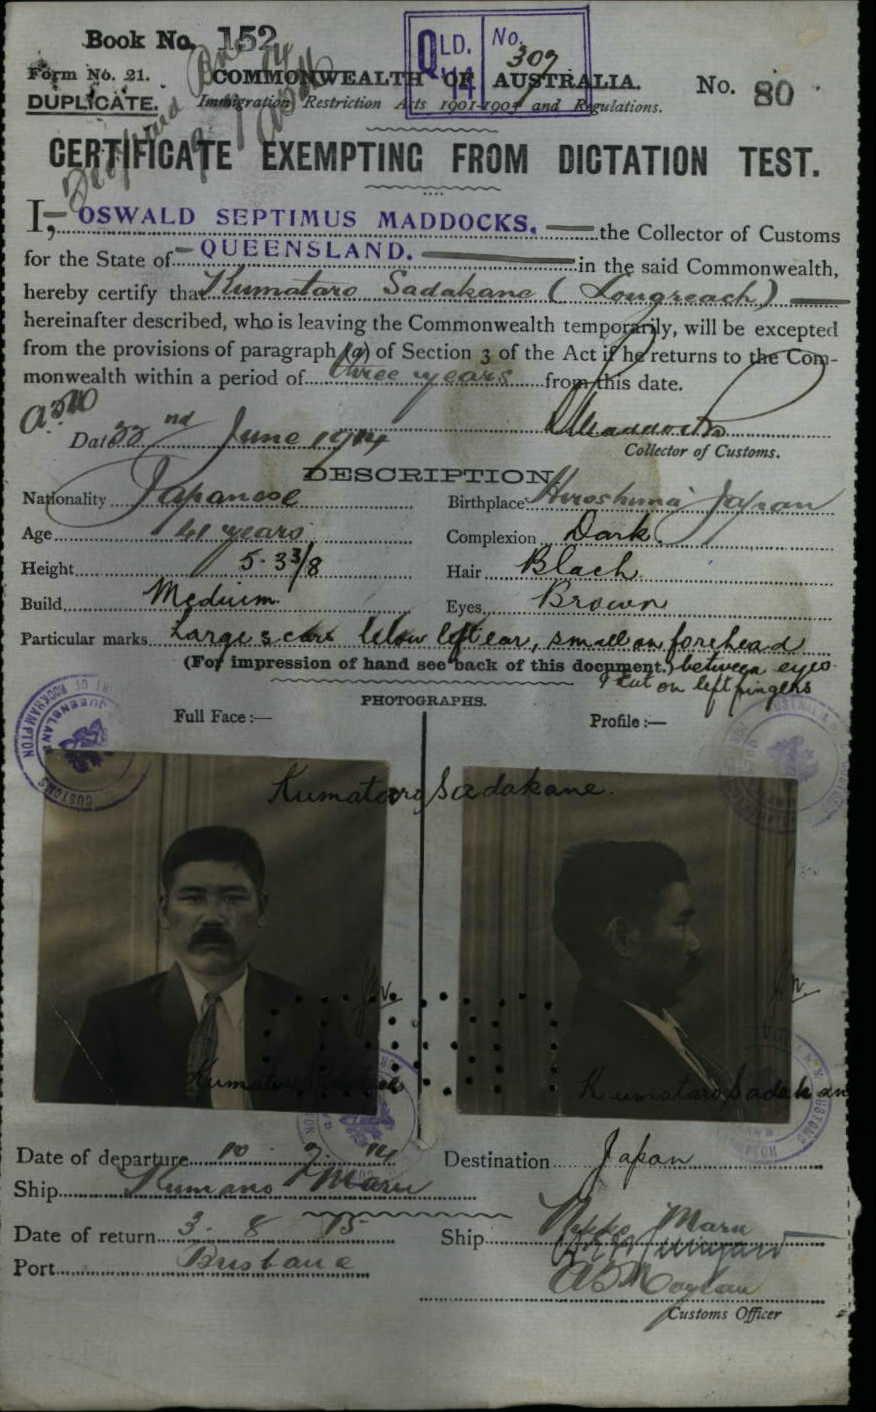 Book No. 152
QLD. 14 No. 307
Form No. 21.
COMMONWEALTH OF AUSTRALIA.
No. 80
DUPLICATE.
Immigration Restriction Acts 1901-1905 and Regulations.
CERTIFICATE EXEMPTING FROM DICTATION TEST.
I, OSWALD SEPTIMUS MADDOCKS, the Collector of Customs
for the State of QUEENSLAND. in the said Commonwealth,
hereby certify that Kumataro Sadakane (Longreach)
hereinafter described, who is leaving the Commonwealth temporarily, will be excepted
from the provisions of paragraph (a) of Section 3 of the Act if he returns to the Com-
monwealth within a period of three years from this date.
Date 22nd June 1914
Collector of Customs.
DESCRIPTION
Nationality Japanese Birthplace Hiroshima Japan
Age 41 years Complexion Dark
Height 5. 3 3/8 Hair Black
Build Medium Eyes Brown
Particular marks Large scar below left ear, small on forehead
(For impression of hand see back of this document.) between eyes
& cut on left fingers
PHOTOGRAPHS.
Full Face :— Profile :—
Kumataro Sadakane.
Kumataro
Kumataro Sadakan
Date of departure 10 . 7 . 14 Destination Japan
Ship Kumano Maru
Date of return 3 . 8 15 Ship Nikko Maru
Port Brisbane
Customs Officer